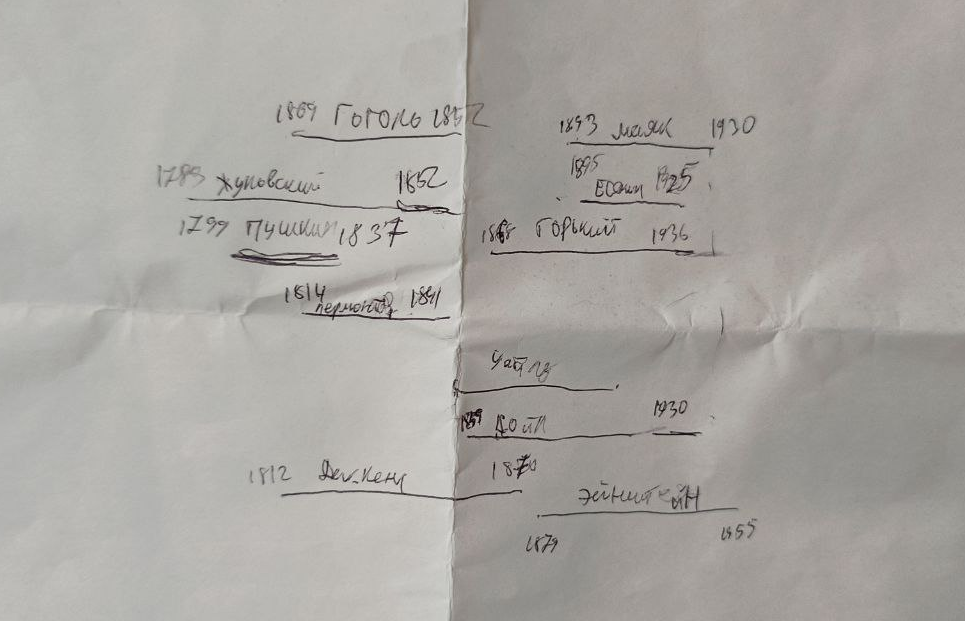 1809 Гоголь 1852
1783 Жуковский 1852
1799 Пушкин 1837
1814 Лермонтов 1841
1893 маяк 1930
1895 Есенин 1925
1868 Горький 1936
Уайльд
1859 Дойл 1930
1812 Диккенс 1870
Эйнштейн
1879 1955